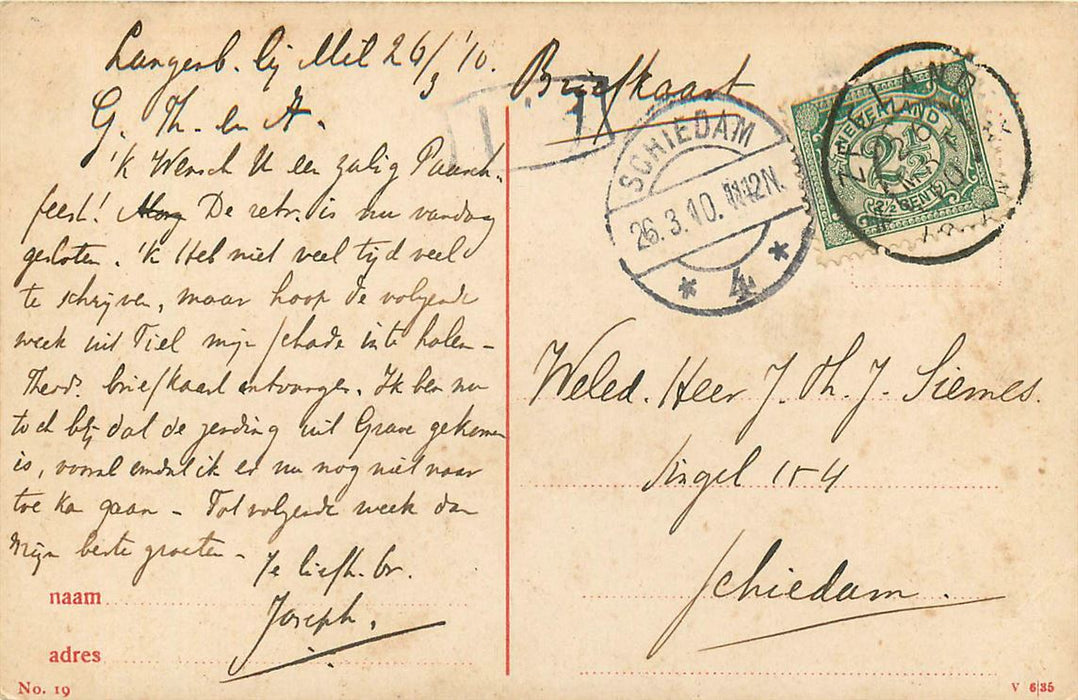 Langenb. bij Mil 26/3 '10.
G. Th. en A.
'k Wensch U een zalig Paasch-
feest! De retr. is nu vandaag
gesloten. 'k Heb niet veel tijd veel
te schrijven, maar hoop de volgende
week uit Tiel mijn schade in te halen -
Theod. briefkaart ontvangen. Ik ben nu
toch blij dat de zending uit Grave gekomen
is, vooral omdat ik er nu nog niet naar
toe kan gaan - Tot volgende week dan
Mijn beste groeten -
Je liefh. br.
Joseph.
naam
adres
No. 19
Briefkaart
SCHIEDAM
26.3.10. 11-12N.
* 4 *
NEDERLAND
2½
2½ CENT
ZEELAND
Weled. Heer J. Th. J. Siemes.
Singel 154
Schiedam.
V 635